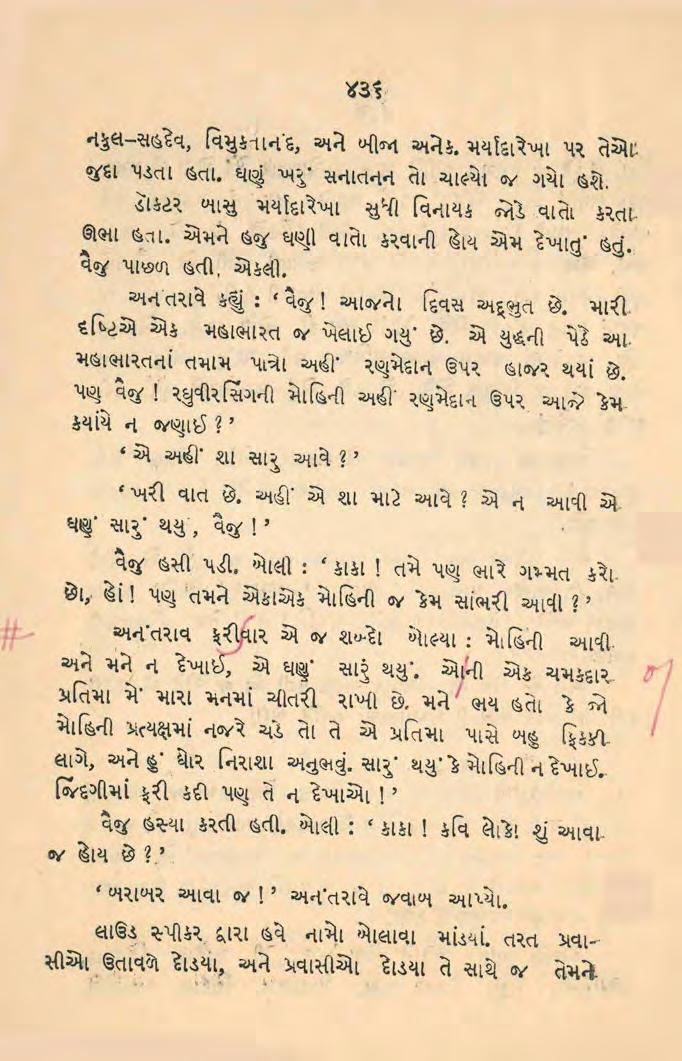 ૪૩૬
નકુલ–સહદેવ, વિમુક્તાનંદ, અને બીજા અનેક. મર્યાદારેખા પર તેઓ
જુદા પડતા હતા. ઘણું ખરું સનાતનન તો ચાલ્યો જ ગયો હશે.
ડૉકટર બાસુ મર્યાદારેખા સુધી વિનાયક જોડે વાતો કરતા
ઊભા હતા. એમને હજુ ઘણી વાતો કરવાની હોય એમ દેખાતું હતું.
વૈજુ પાછળ હતી, એકલી.
અનંતરાવે કહ્યું : ‘ વૈજુ ! આજનો દિવસ અદ્ભુત છે. મારી
દષ્ટિએ એક મહાભારત જ ખેલાઈ ગયું છે. એ યુદ્ધની પેઠે આ
મહાભારતનાં તમામ પાત્રો અહીં રણમેદાન ઉપર હાજર થયાં છે.
પણ વૈજુ ! રઘુવીરસિંગની મોહિની અહીં રણમેદાન ઉપર આજે કેમ
કયાંયે ન જણાઈ ? ’
‘ એ અહીં શા સારુ આવે ? ’
‘ ખરી વાત છે. અહીં એ શા માટે આવે ? એ ન આવી એ
ઘણું સારું થયું, વૈજુ ! ’
વૈજુ હસી પડી. બોલી : ‘ કાકા ! તમે પણ ભારે ગમ્મત કરો
છો, હોં ! પણ તમને એકાએક મોહિની જ કેમ સાંભરી આવી ? ’
# અનંતરાવ ફરીવાર એ જ શબ્દો બોલ્યા : મોહિની આવી
અને મને ન દેખાઈ, એ ઘણું સારું થયું. એાની એક ચમકદાર
પ્રતિમા મેં મારા મનમાં ચીતરી રાખી છે. મને ભય હતો કે જો
મોહિની પ્રત્યક્ષમાં નજરે ચડે તો તે એ પ્રતિમા પાસે બહુ ફિક્કી
લાગે, અને હું ઘોર નિરાશા અનુભવું. સારું થયું કે મોહિની ન દેખાઈ.
જિંદગીમાં ફરી કદી પણ તે ન દેખાઓ ! ’
વૈજુ હસ્યા કરતી હતી. બોલી : ‘ કાકા ! કવિ લોકો શું આવા
જ હોય છે ? ’
‘ બરાબર આવા જ ! ’ અનંતરાવે જવાબ આપ્યો.
લાઉડ સ્પીકર દ્વારા હવે નામો બોલાવા માંડયાં. તરત પ્રવા–
સીઓ ઉતાવળે દોડયા, અને પ્રવાસીઓ દોડયા તે સાથે જ તેમને